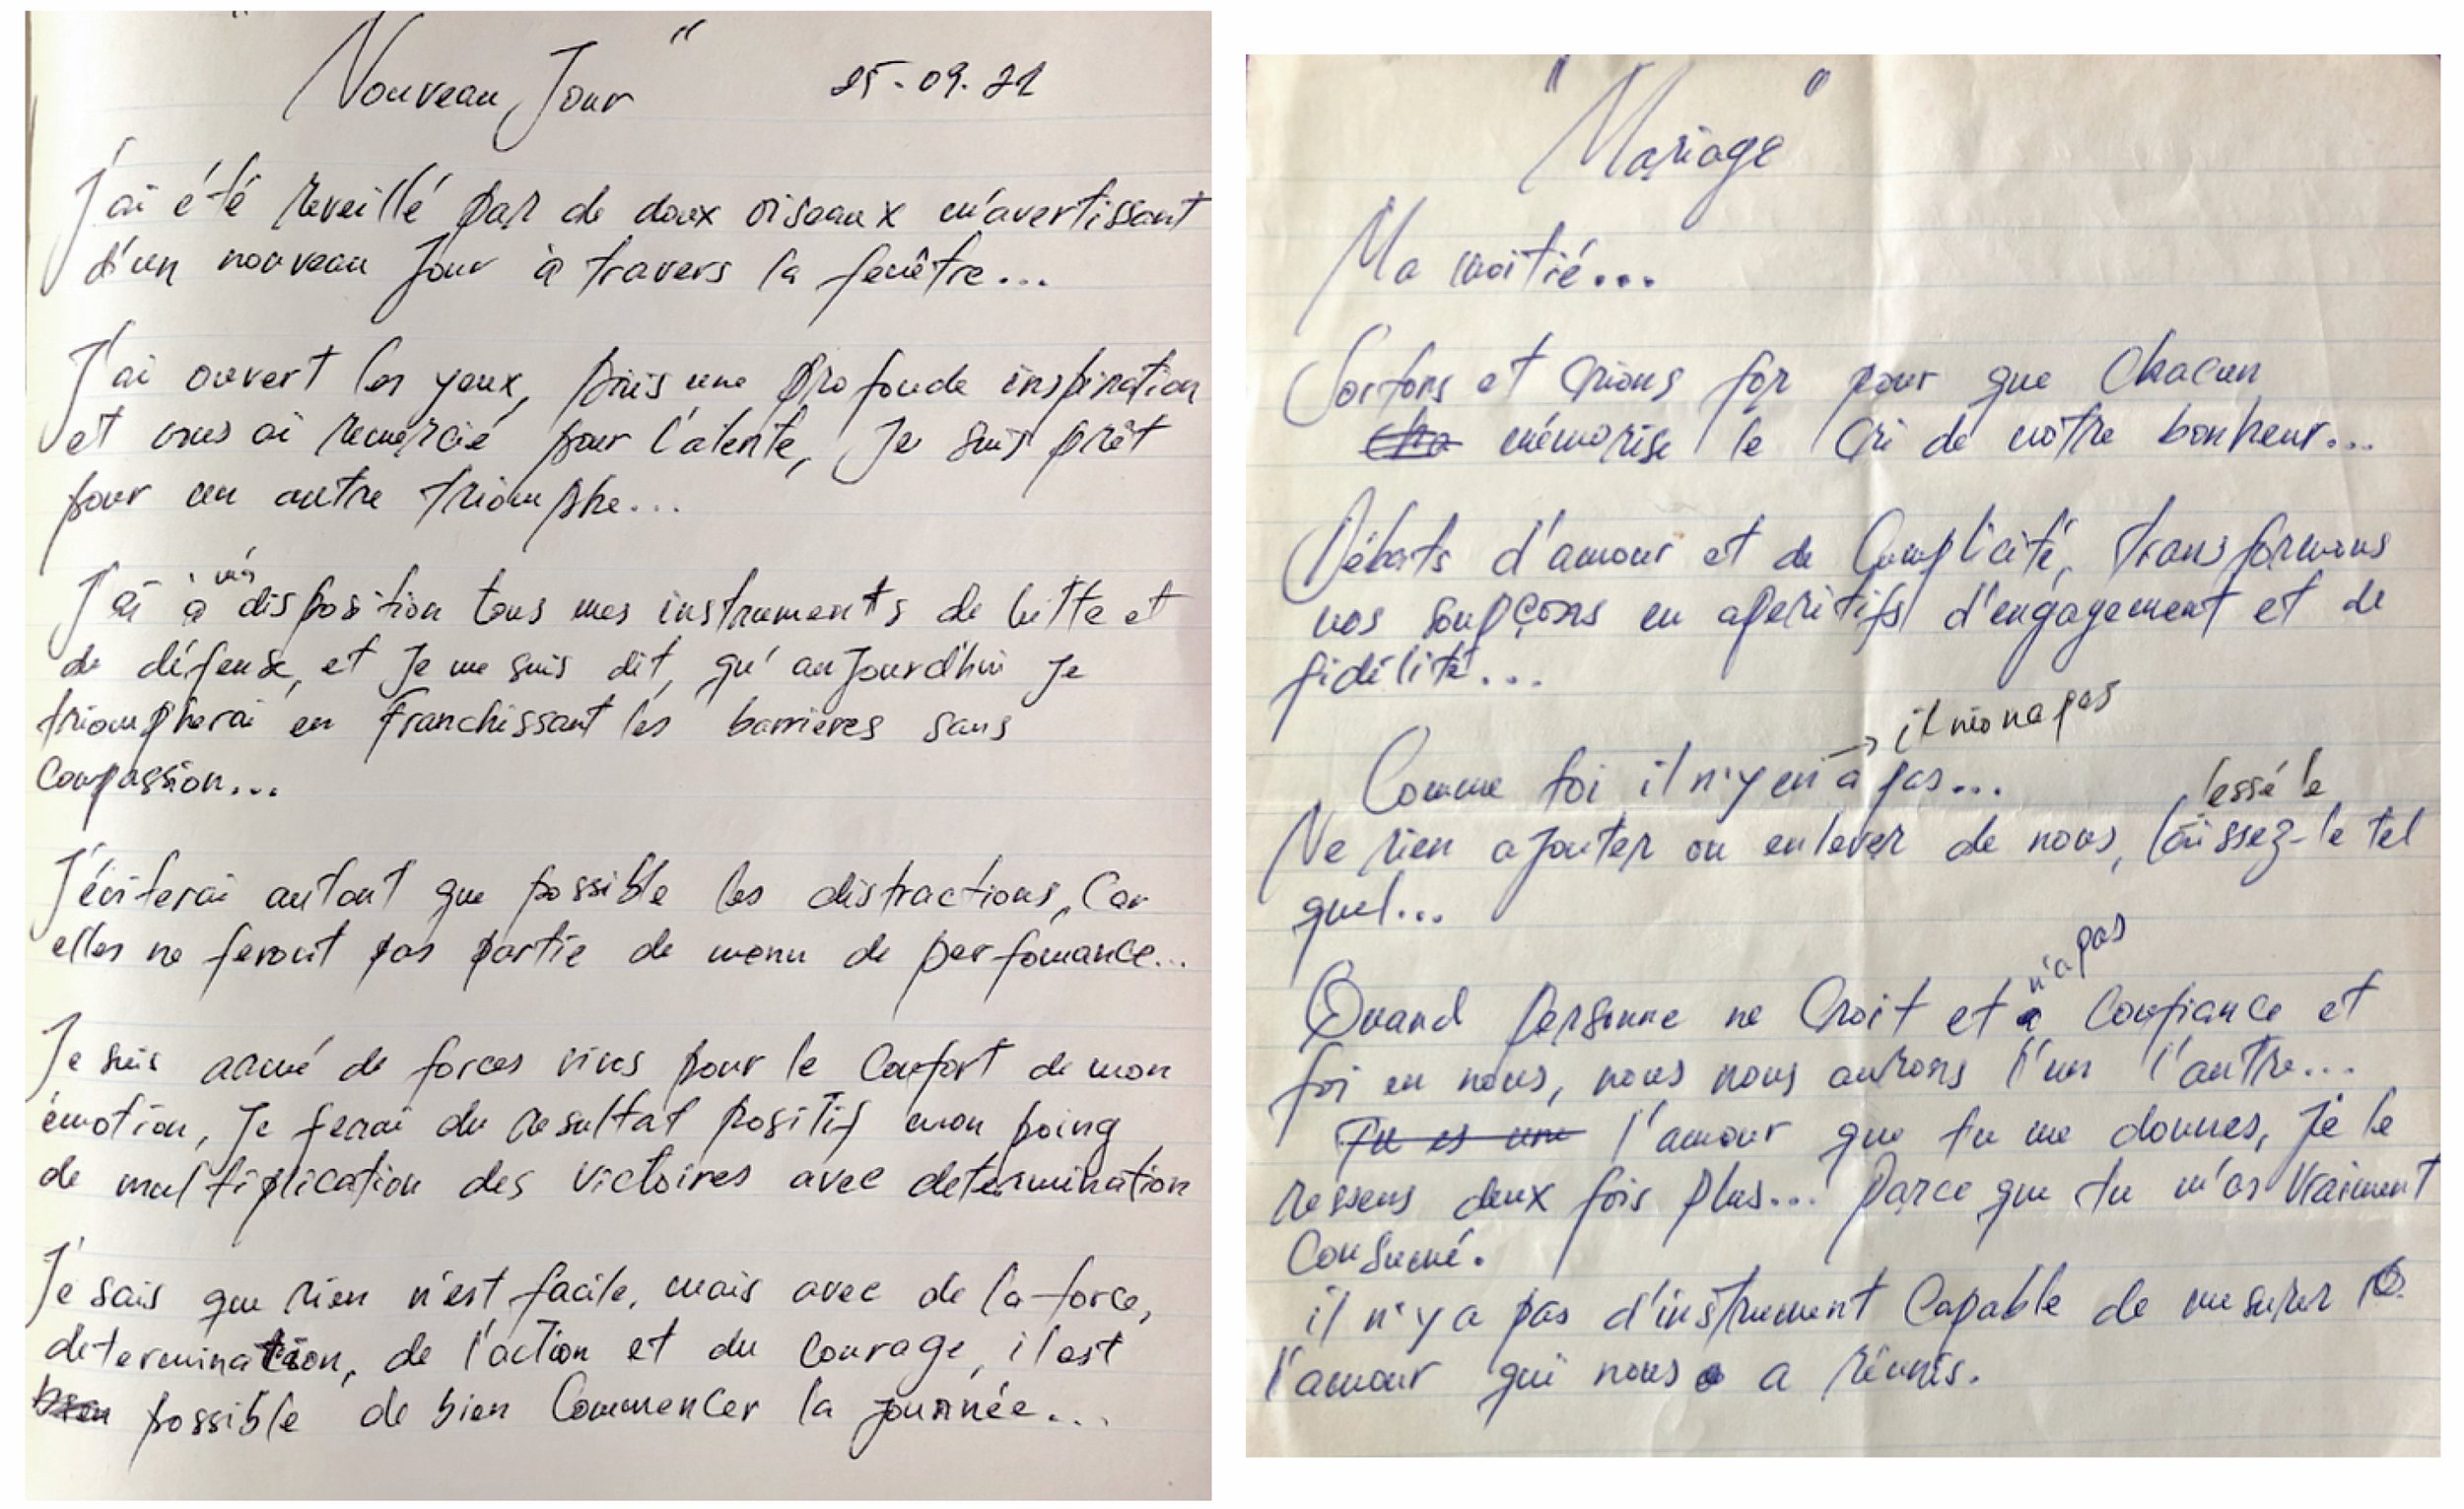 " Nouveau Jour " 25-09-21
J'ai été reveillé par de doux oiseaux m'avertissant
d'un nouveau Jour à travers la fenêtre...
J'ai ouvert les yeux, pris une profonde inspiration
et vous ai remercié pour l'atente, Je suis prêt
pour un autre triomphe...
J'ai à ma disposition tous mes instruments de lutte et
de défense, et Je me suis dit, qu'aujourd'hui Je
triompherai en franchissant les barrières sans
compassion...
J'éviterai autant que possible les distractions, Car
elles ne feront pas partie de menu de perfomance...
Je suis armé de forces vives pour le Confort de mon
émotion, Je ferai du resultat positif mon poing
de multiplication des victoires avec determination
Je sais que rien n'est facile, mais avec de la force,
determination, de l'action et du courage, il est
bien possible de bien Commencer la journée...
"Mariage"
Ma moitié...
Sortons et Crions for pour que Chacun
Cha mémorise le Cri de notre bonheur...
Débats d'amour et de Complicité, transformons
nos soupçons en aperitifs d'engagement et de
fidélité...
→ il nio na pas
Comme toi il n'y en a pas...
lessé le
Ne rien ajouter ou enlever de nous, laissez-le tel
quel...
n'a pas
Quand personne ne Croit et a Confiance et
foi en nous, nous nous aurons l'un l'autre...
Tu es une l'amour que tu me donnes, Je le
ressens deux fois plus... Parce que tu m'as Vraiment
Consumé.
il n'y a pas d'instrument Capable de mesurer
l'amour qui nous a réunis.